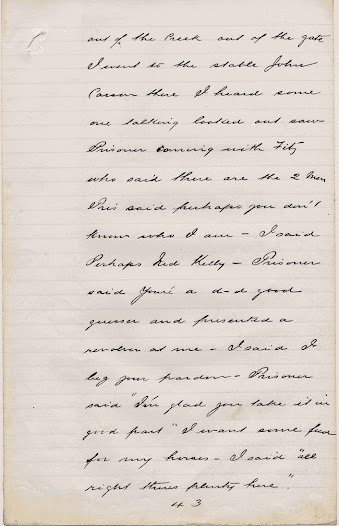 out of the Creek out of the gate
I went to the stable John
Carson there I heard some
one talking looked out saw
Prisoner coming with Fitz
who said there are the 2 Men
Pris said perhaps you don't
know who I am – I said
Perhaps Ned Kelly – Prisoner
said You're a d–d good
guesser and presented a
revolver at me – I said I
beg your pardon – Prisoner
said "I'm glad you take it in
good part" I want some feed
for my horses – I said "all
right theres plenty here".
43